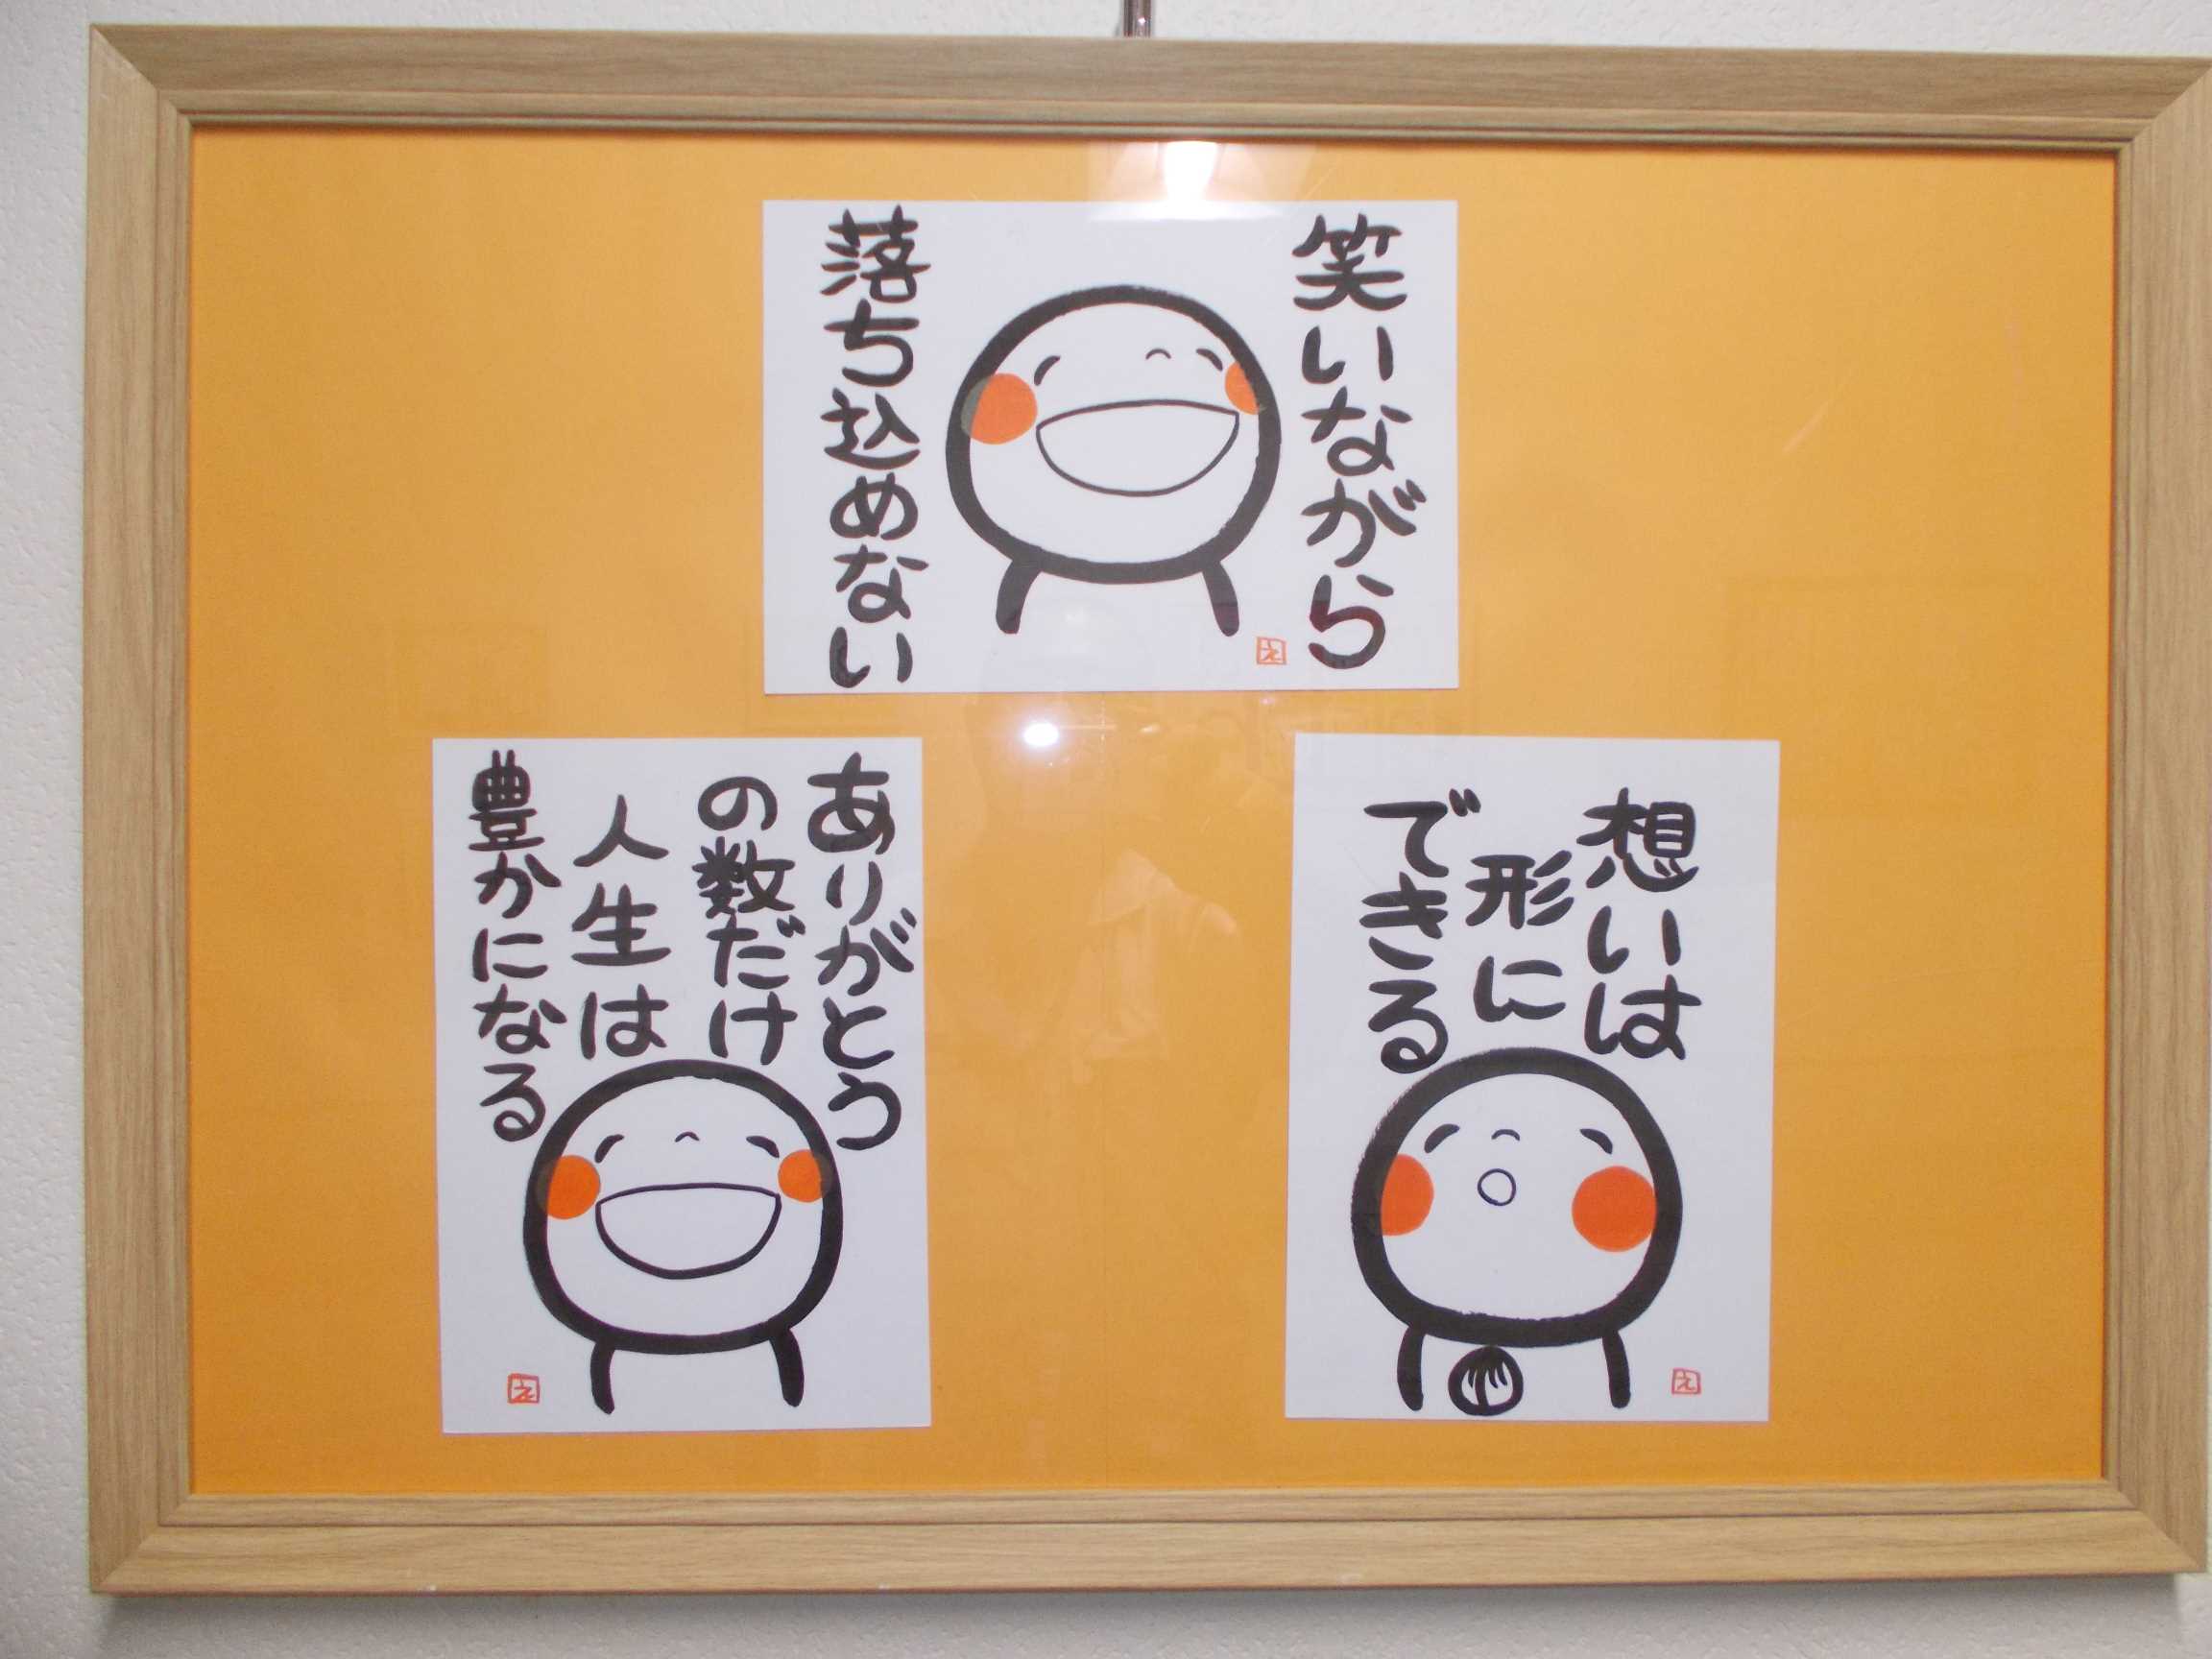 笑いながら
落ち込めない
え
想いは
形に
できる
え
ありがとう
の数だけ
人生は
豊かになる
え